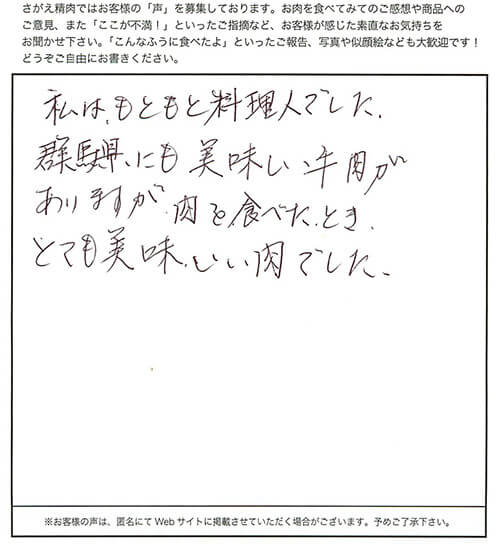 さがえ精肉ではお客様の「声」を募集しております。お肉を食べてみてのご感想や商品への
ご意見、また「ここが不満!」といったご指摘など、お客様が感じた素直なお気持ちを
お聞かせ下さい。「こんなふうに食べたよ」といったご報告、写真や似顔絵なども大歓迎です!
どうぞご自由にお書きください。
私は、もともと料理人でした。
群馬県、にも美味しい牛肉が
ありますが、肉を食べた、とき、
とても美味、しい肉でした、
※お客様の声は、匿名にてWebサイトに掲載させていただく場合がございます。予めご了承下さい。